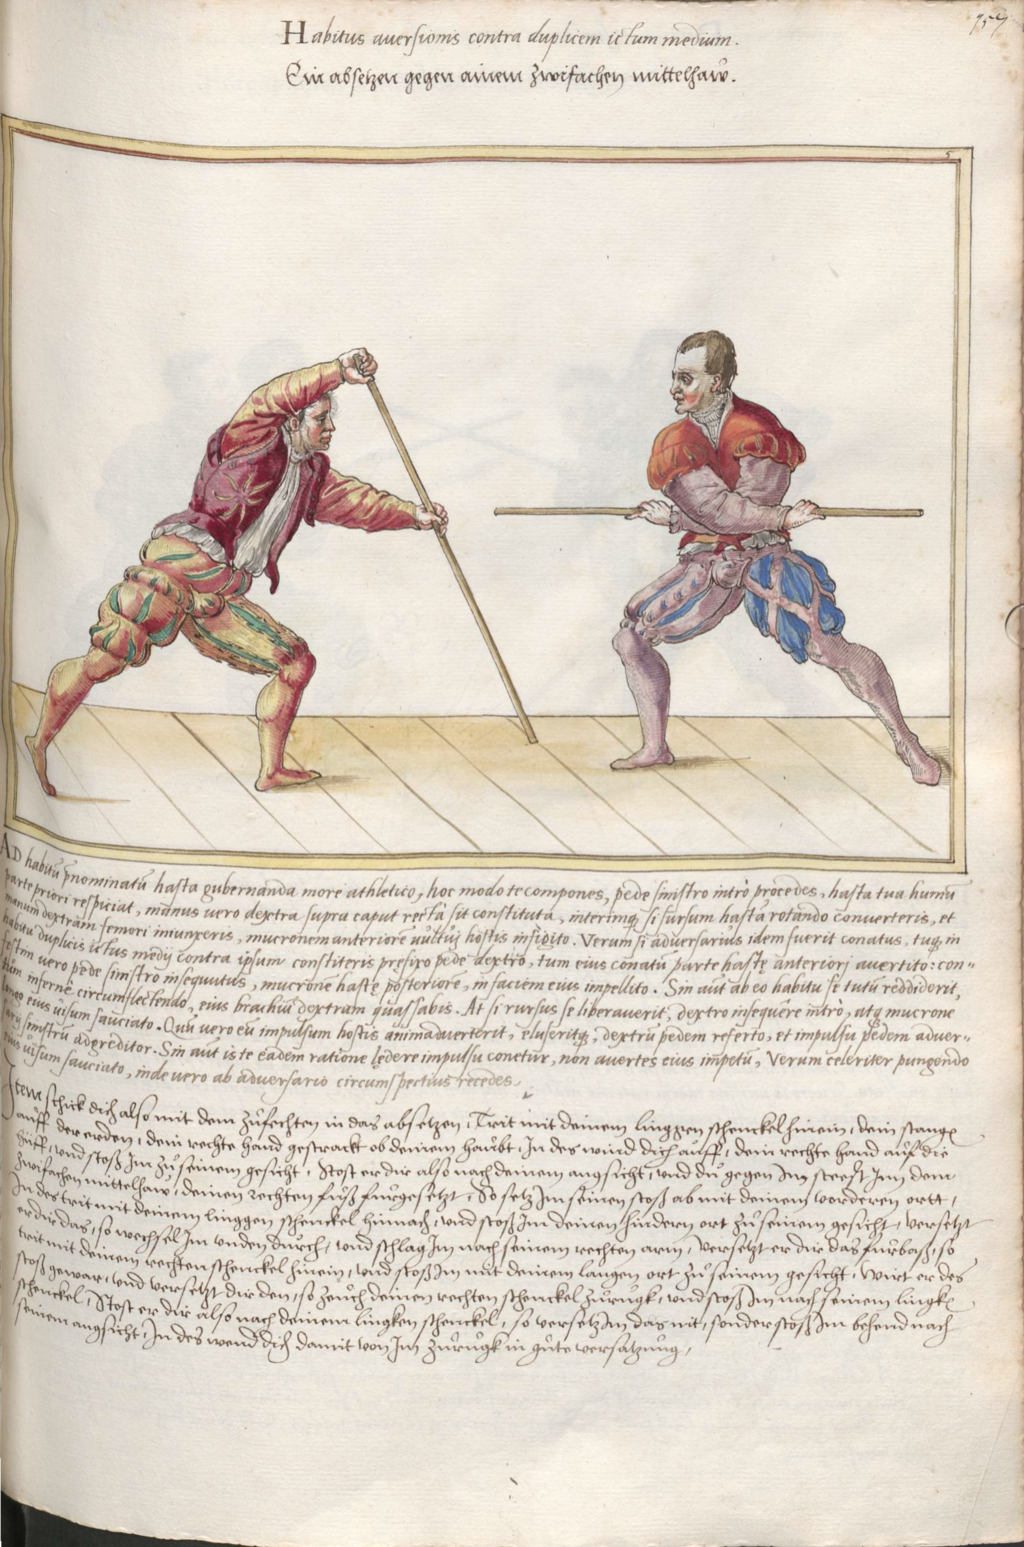 159
Habitus auersionis contra duplicem ictum medium.
Ein absetzen gegen ainem zwifachen mittelhaw.
5
AD habitū p̄nominatū hasta gubernanda more athletico, hoc modo te compones, pede sinistro intrò procedes, hasta tua humū
parte priori respiciat, manus uero dextra supra caput rectà sit constituta, interimq; si sursum hastā rotando conuerteris, et
manum dextram femori iniunxeris, mucronem anteriorē uultuj hostis infigito. Verum si aduersarius idem fuerit conatus, tuq; in
habitu duplicis ictus medij contra ipsum constiteris prefixo pede dextro, tum eius conatū parte hastę anteriorj auertito: con-
festim uero pede sinistro insequutus, mucronē hastę posteriorē, in faciem eius impellito. Sin aūt ab eo habitu se tutū reddiderit,
tum infernè circumflectendo, eius brachiū dextram quassabis. At si rursus se liberauerit, dextro insequêre intrò, atq; mucrone
longo eius uisum sauciato. Quū uero eū impulsum hostis animaduerterit, eluseritq;, dextrū pedem referto, et impulsu pedem aduer-
sarij sinistrū adgreditor. Sin aūt iste eadem ratione lędere impulsu conetur, non auertes eius impetū, Verum celeriter pungendo
eius uisum sauciato, inde uero ab aduersario circumspectius recedes.
Item schick dich also mit dem zůfechten in das absetzen, Trit mit deinem linggen schenckel hinein, dein stang
auff der erden, dein rechte hand gestrackt ob deinem haubt, In des wind dich auff, dein rechte hand auf die
hüff, und stoß Im zů seinem gesicht, Stost er dir also nach deinem angsicht, und du gegen Im steest Im dem
zwifachen mittelhaw, deinen rechten fuß furgesetzt, So setz Im seinen stoß ab mit deinem vorderen ortt,
In des trit mit deinem linggen schenckel hinnach, und stoß Im deinen hindern ort zů seinem gesicht, versetzt
er dir das, so wechsel Im unden durch, und schlag Im nach seinem rechten arm, versetzt er dir das fürbaß, so
trit mit deinem rechten schenckel hinein, und stoß Im mit deinem langen ort zů seinem gesicht, Wirt er des
stoß gewar, und versetzt dir den, so zeuch deinen rechten schenckel zurugk, und stoß Im nach seinem lingkē
schenckel, Stost er dir also nach deinem lingken schenckel, so versetz Im das nit, sonder stoß Im behend nach
seinem angsicht, In des wend dich damit von Im zurugk in gůte versatzung,